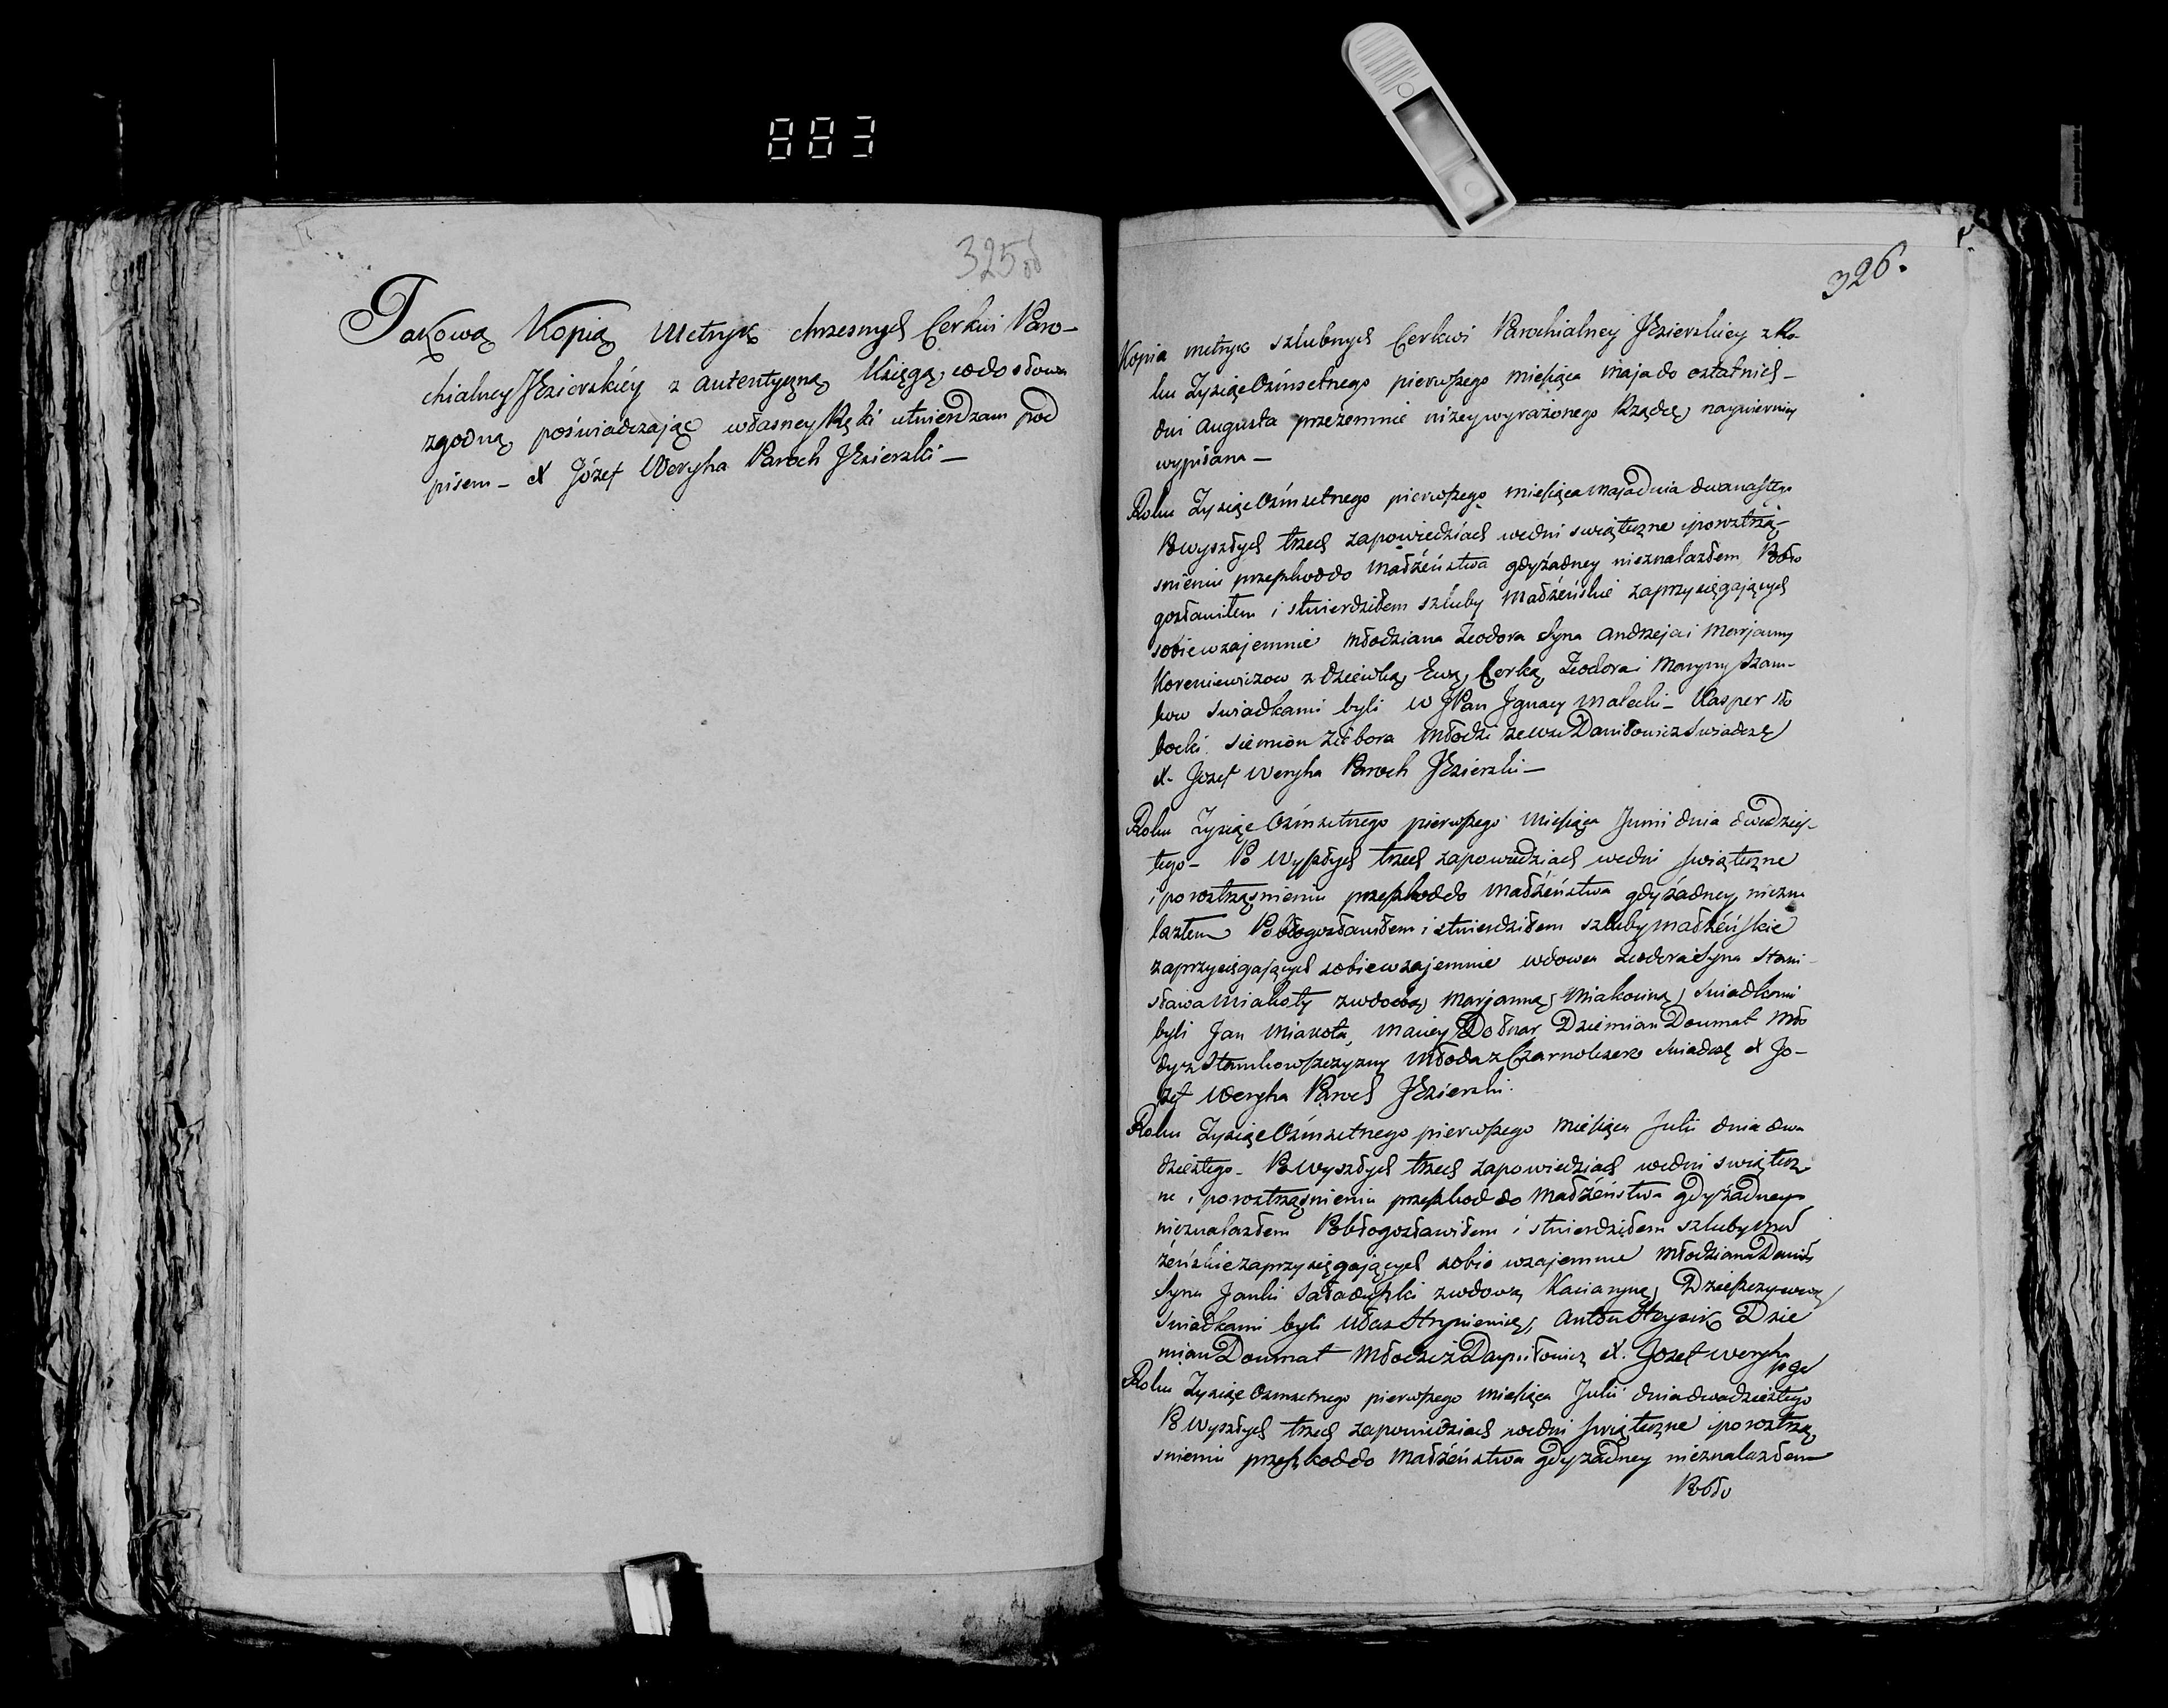 883
325 об
Takową Kopią Metryk chrzesnych Cerkwi Paro-
chialney JEzierskiéy z autentyczną Księgą, wdo słowa
zgodną poświadczając własney Ręki utwierdzam pod
pisem - X Józef Weryha Paroch JEzierski -
326.
Kopia metryk szlubnych Cerkwi Parochialney JEzierskiey z Ro-
ku Tysiąc Osmsetnego pierwszego Miesiąca Maja do ostatnich -
dni Augusta przezemnie niżey wyrażonego Rządcę naywierniey
wypisana -
Roku Tysiąc Osmsetnego pierwszego Miesiąca Maja Dnia dwunastego
Po wyszłych trzech zapowiedziach wedni świąteczne i poroztrzą-
snieniu przeszkod do Małżeństwa gdy żadney nieznalazłem Pobło
gosławiłem i stwierdziłem szluby Małżeńskie zaprzysięgających
sobie wzajemnie Młodziana Teodora Syna Andrzeja i Marjanny
Koreniewiczow z Dziewką Ewą, Corką Teodora i Maryny Szam-
kow Swiadkami byli W JPan Jgnacy Małecki - Kasper
bocki Siemion Młodzi ze wsi Daniłowicz Swiadczę
X. Jozef Weryha Paroch JEzierski -
Roku Tysiąc Osmsetnego pierwszego Miesiąca Junii dnia dwudziés-
tego - Po Wyszłych trzech zapowiedziach wedni swiąteczne
i po roztrząsnieniu przeszkod do Małżeństwa gdy żadney niezna
lazłem Pobłogosławiłem i stwierdziłem szluby małżeńskie
zaprzysięgających sobie wzajemnie wdowca Teodora Syna Stani-
sława Miakoty z wdową Marjanną Swiadkami
byli Jan Miakota, Maciey Bodnar Dziemian Doumat Mło
dy z Stankowszczyzny Młoda z Swiadczę X Jo-
zef Weryha Paroch JEzierski.
Roku Tysiąc Osmsetnego pierwszego Miesiąca Julii dnia dwu
dziéstego - Po wyszłych trzech zapowiedziach wedni swiątecz
ne i po roztrząsnieniu przeszkod do Małżeństwa gdy żadney
nieznalazłem Pobłogosławiłem i stwierdziłem szluby Mał
żeńskie zaprzysięgających sobie wzajemnie Młodziana Daniły
Syna Janki z wdową Kaciaryną
Swiadkami byli Anton Dzie
mian Doumat Młodzi z Daniłowicz X. Jozef Weryha
Roku Tysiąc Osmsetnego pierwszego Miesiąca Julii dnia dwudziéstego
Po Wyszłych trzech zapowiedziach wedni swiąteczne i po roztrzą
snieniu przeszkod do Małżeństwa gdy żadney nieznalazłem
Pobło